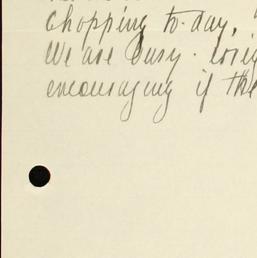 chopping to-day,
We are busy.
encouraging if the